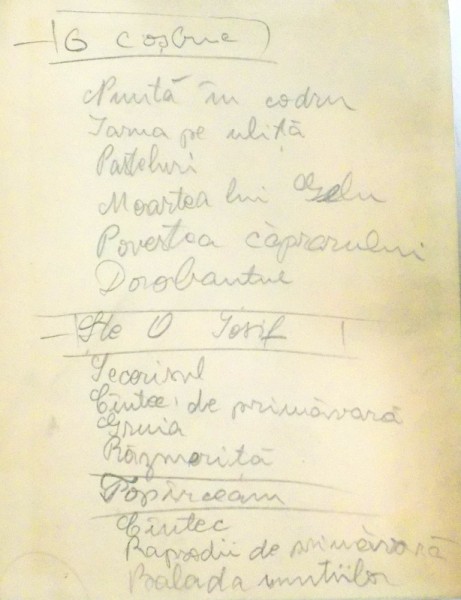 G Coșbuc
Nuntă în codru
Iarna pe uliță
Pasteluri
Moartea lui Gelu
Povestea căprarului
Dorobantul
Șt O Iosif
Cîntec de primăvară
Gruia
Răzmerită
Topîrceanu
Cîntec
Rapsodii de primăvară
Balada munților